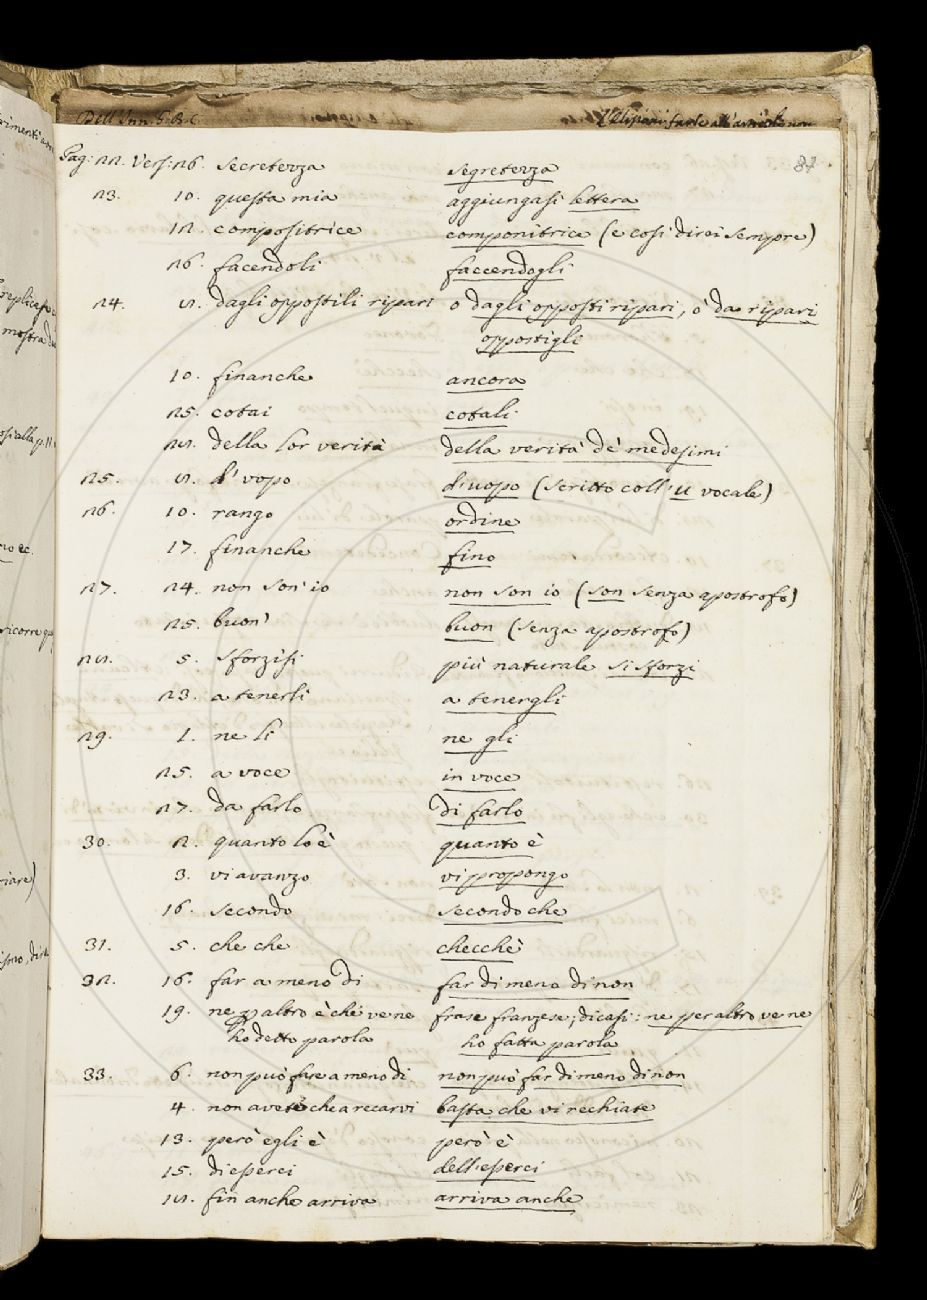 Pag: 22. Vers: 26. secretezza segretezza
87
23. 10. questa mia aggiungasi lettera
12. compositrice componitrice (e così direi sempre)
26. facendoli faccendogli
24. 8. dagli oppostili ripari o dagli opposti ripari, o da' ripari
oppostigli
10. finanche ancora
25. cotai cotali
28. della lor verità della verità de' medesimi
25. 8. d' vopo d'uopo (scritto coll'u vocale)
26. 10. rango ordine
17. finanche fino
27. 24. non son' io non son io (son senza apostrofo)
25. buon' buon (senza apostrofo)
28. 5. sforzisi più naturale si sforzi
23. a tenerli a tenergli
29. 1. ne li ne gli
25. a voce in voce
27. da farlo di farlo
30. 2. quanto lo è quanto è
3. vi avanzo vi propongo
16. secondo secondo che
31. 5. che che checchè
32. 16. far a meno di far di meno di non
19. ne p altro è che ve ne frase franzese; dicasi: ne per altro ve ne
ho detto parola ho fatta parola
33. 6. non può fare a meno di non può far di meno di non
4. non avete che a recarvi basta che vi rechiate
13. però egli è però è
15. di esserci dell'esserci
18. fin anche arriva arriva anche